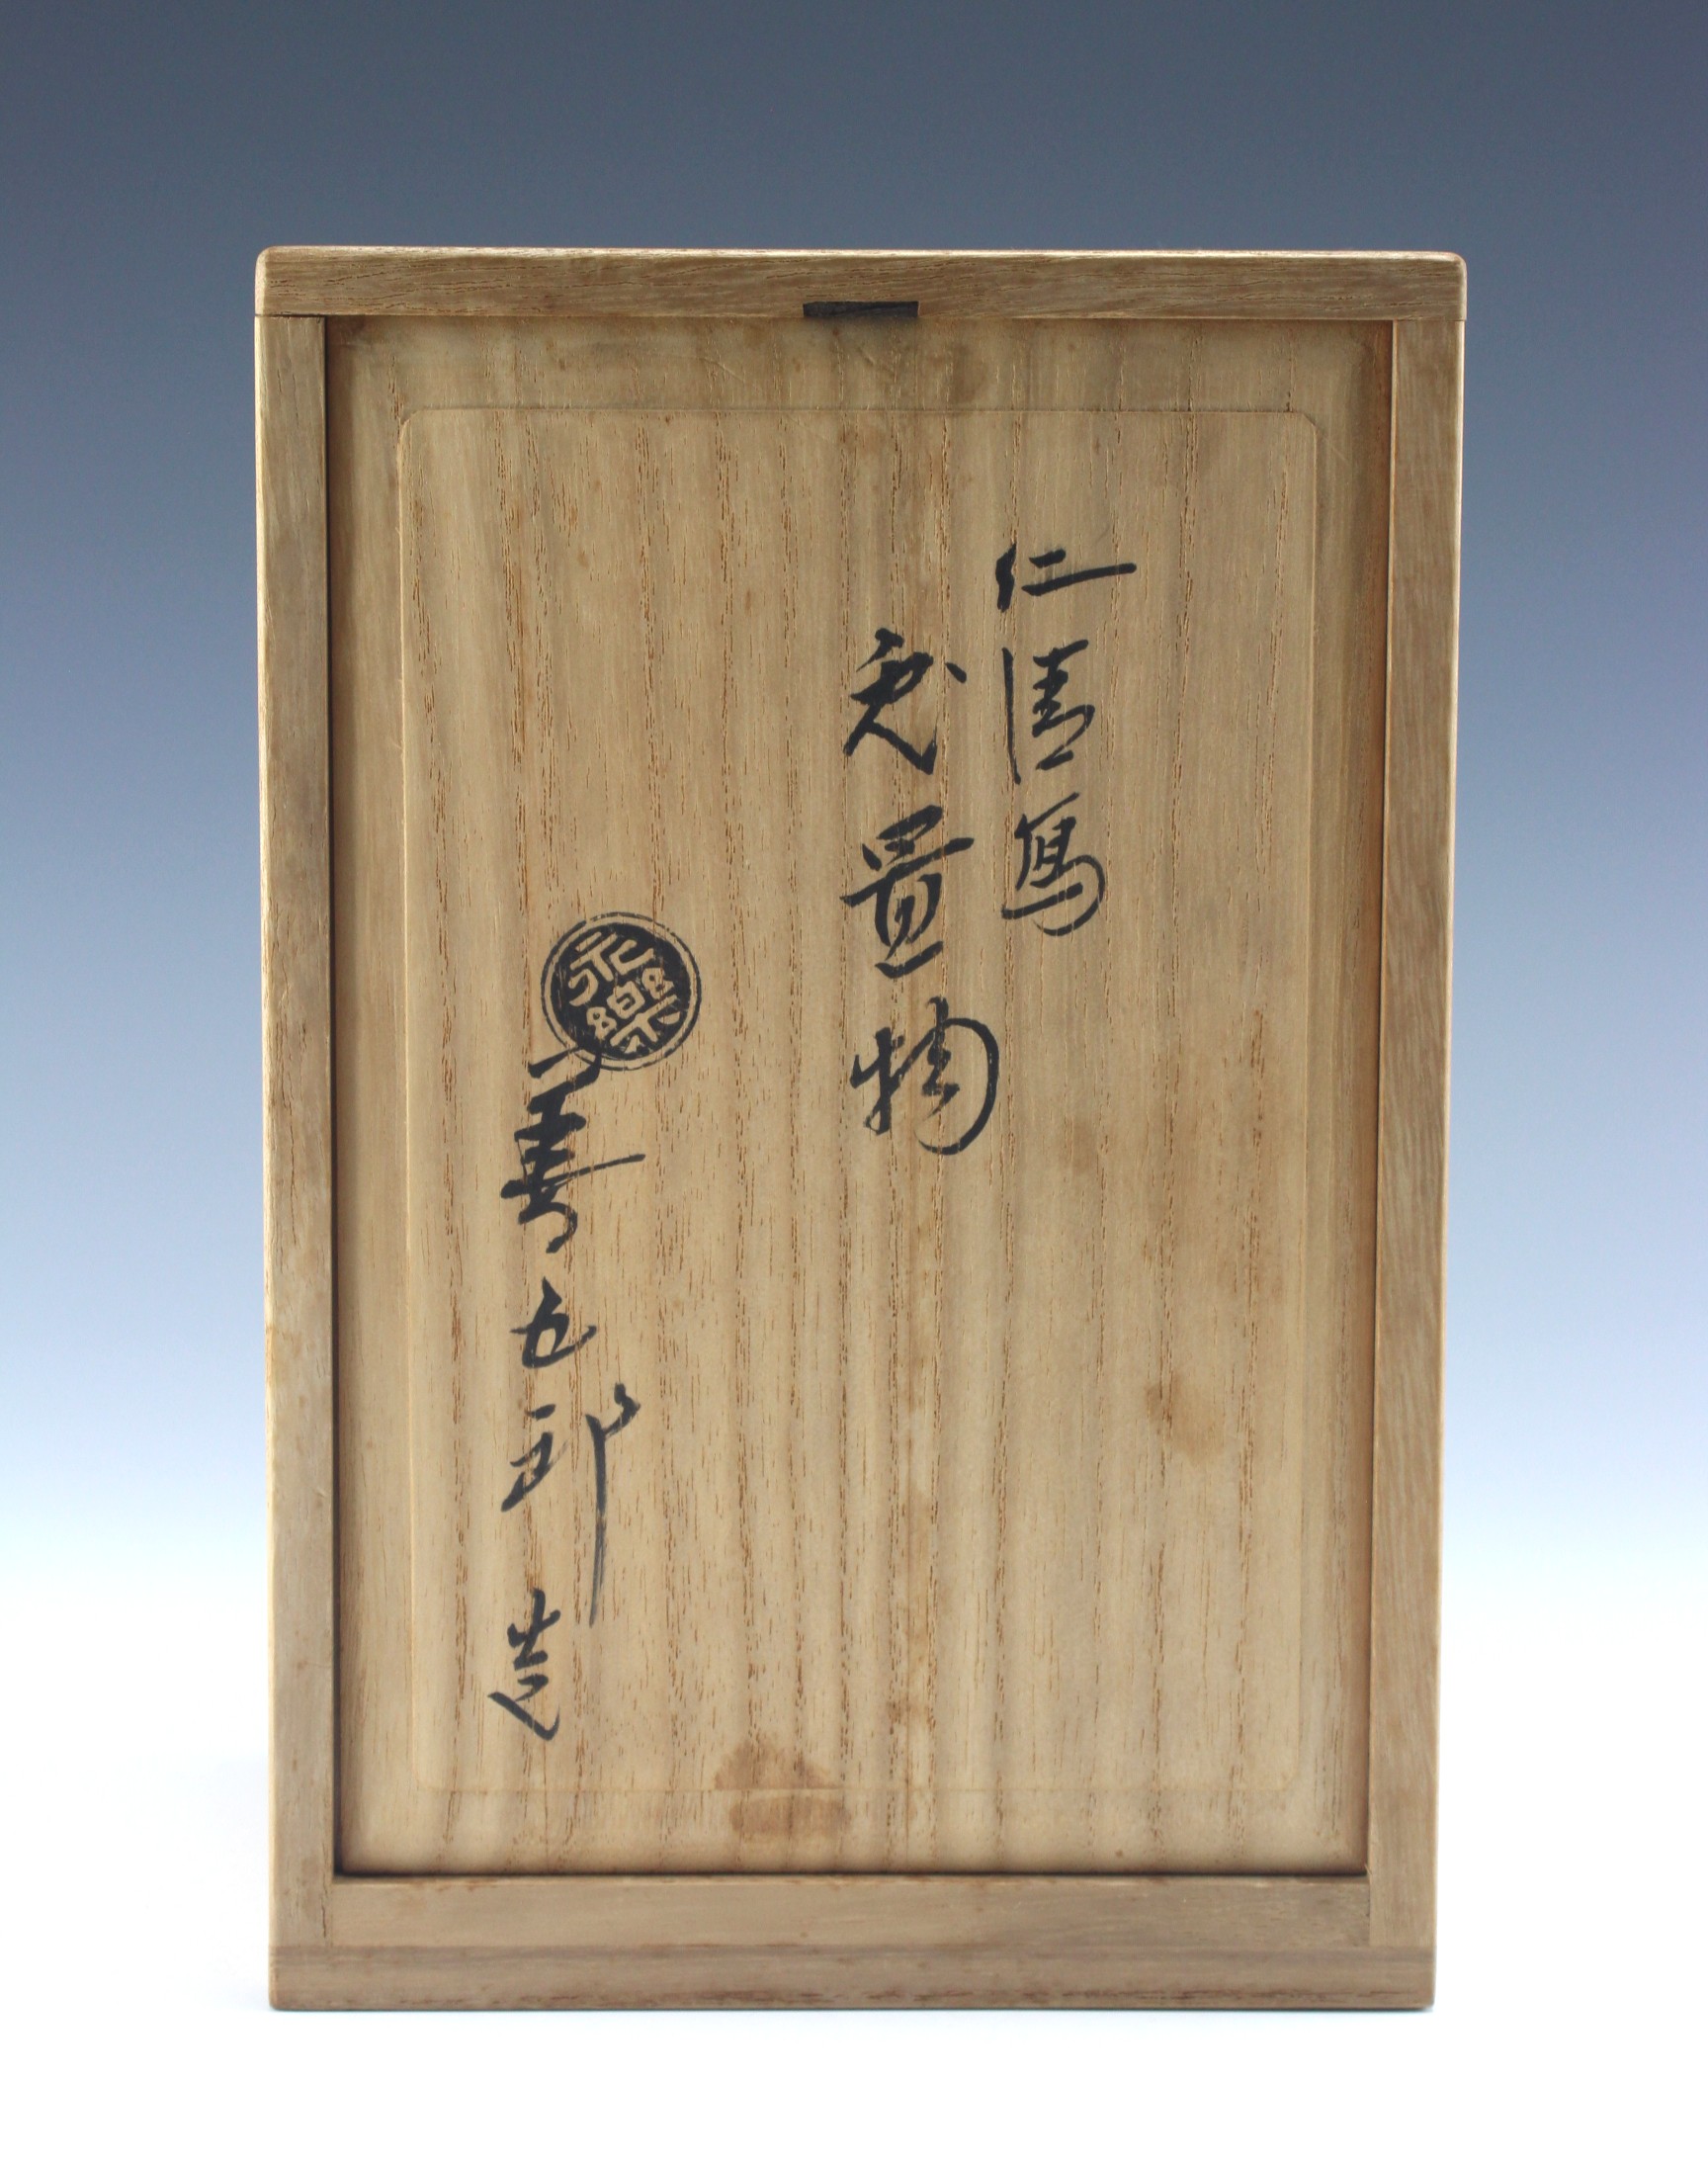 仁清写
兎置物
永樂
善五郎造